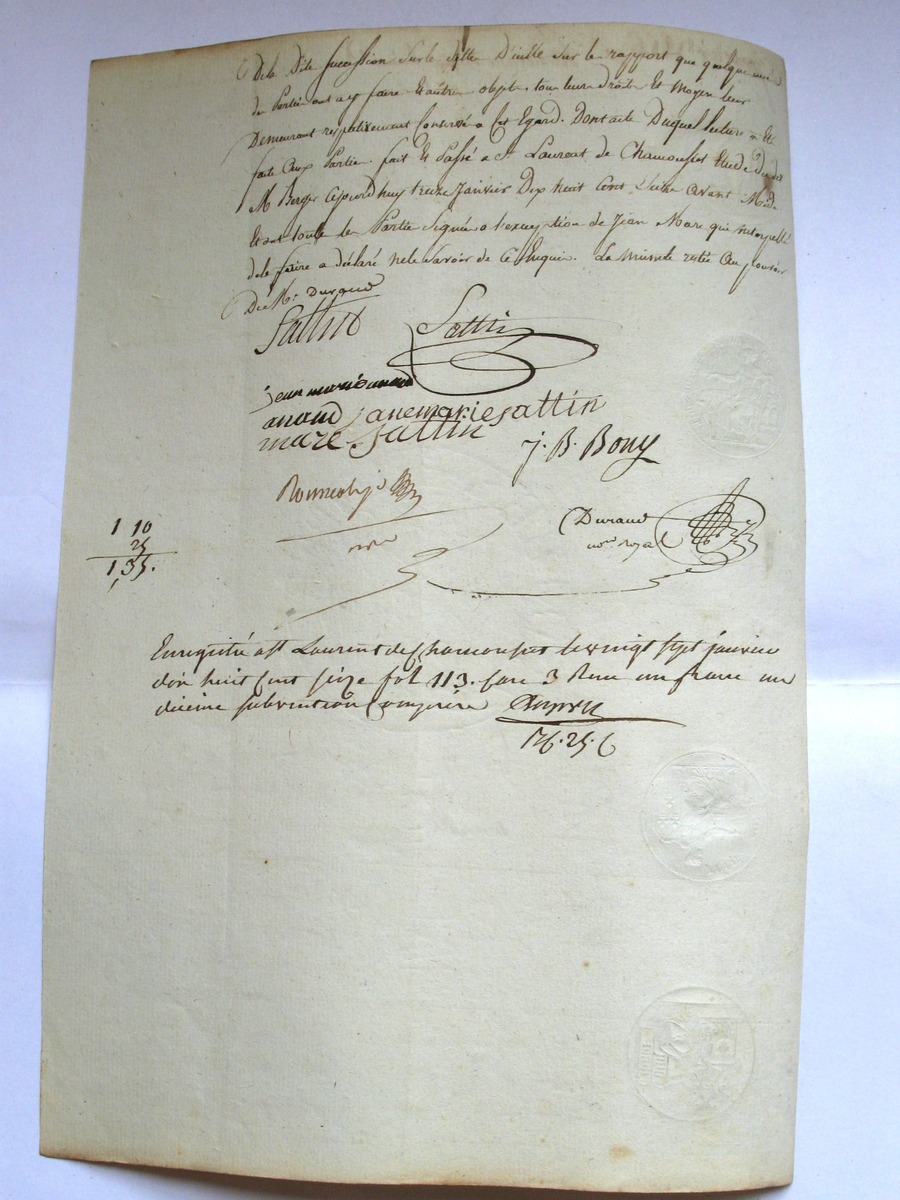 De la Dite succession sur le sur le rapport que quelque
de Partie ont a y faire Et autre objets, tous leur droits Et moyen leur
Demeurant respectivement Conservé a Cet Egard. Dont acte Duquel lecture a Eté
faite Aux Partie. fait Et Passé a St. Laurent de Chamousset Etude Du dit
Me Berger Cejourd'huy treize Janvier Dix huit Cent Seize avant Midi
Etant toute les Partie Signée a l'exception de Jean Marc qui interpellé
de le faire a déclaré ne le Savoir de Ce Enquis. La minute restée Au pouvoir
De Me. Durand
Sattin Sattin
jean marie
anemarie sattin
marc Sattin
J. B. Bony
Durand
nore royal
1 10
25
1,35.
Enregistré a St Laurent de Chamousset le vingt sept janvier
dix huit cent seize fol 113. case 3 Reçu un franc un
décime subvention Comprise
176.25.6